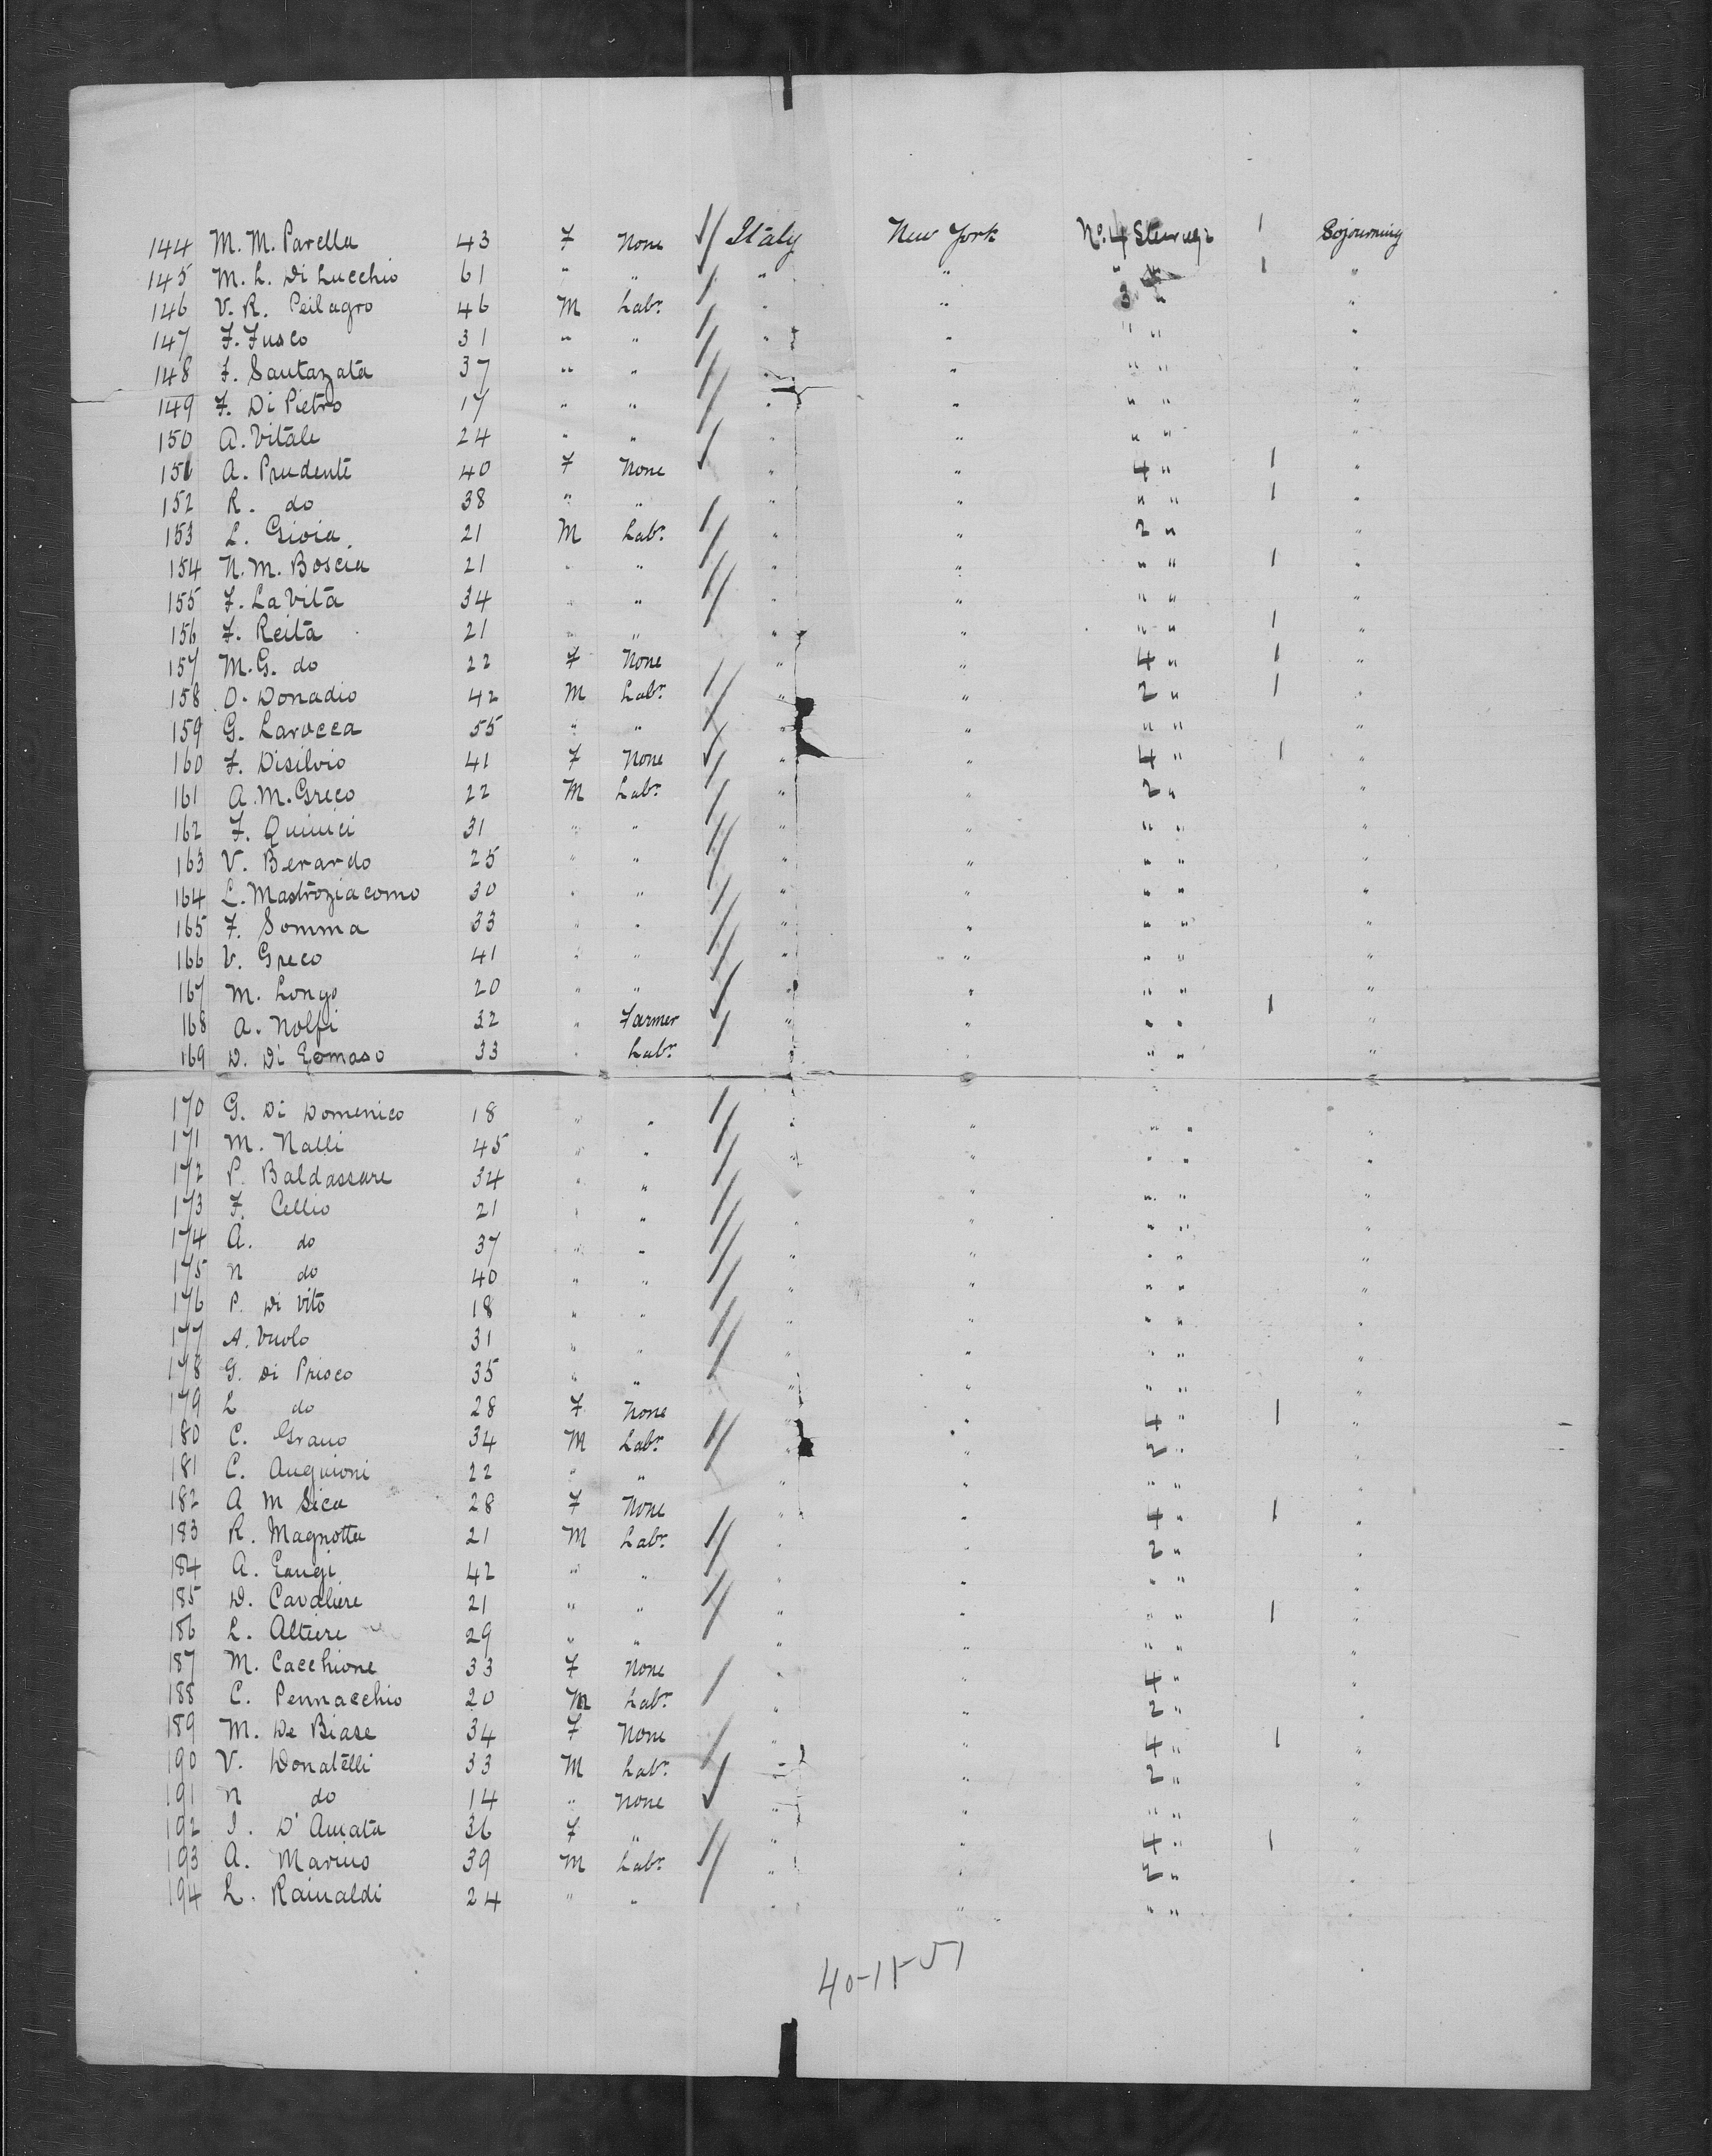 144 M. M. Parella 43 F None Italy New York No. 4 Steerage 1 Sojourning
145 M. L. Di Lucchio 61 " " " " " " 1 "
146 V. R. Peilagro 46 M Labr " " 3 " "
147 F. Fusco 31 " " " " " " "
148 F. Santazata 37 " " " " " " "
149 F. Di Pietro 17 " " " " " " "
150 A. Vitale 24 " " " " " " "
151 A. Prudente 40 F None " " 4 " 1 "
152 R. do 38 " " " " " " 1 "
153 L. Gioia 21 M Labr " " 2 " "
154 N. M. Boscia 21 " " " " " " 1 "
155 F. La Vita 34 " " " " " " "
156 F. Reita 21 " " " " " " 1 "
157 M. G. do 22 F None " " 4 " 1 "
158 O. Donadio 42 M Labr " " 2 " 1 "
159 G. Larocca 55 " " " " " " "
160 F. Disilvio 41 F None " " 4 " 1 "
161 A. M. Greco 22 M Labr " " 2 " "
162 F. Quinici 31 " " " " " " "
163 V. Berardo 25 " " " " " " "
164 L. Mastroziacomo 30 " " " " " " "
165 F. Somma 33 " " " " " " "
166 V. Greco 41 " " " " " " "
167 M. Longo 20 " " " " " " "
168 A. Nolfi 32 " Farmer " " " " 1 "
169 D. Di Tomaso 33 " Labr " " " " "
170 G. Di Domenico 18 " " " " " " "
171 M. Nalli 45 " " " " " " "
172 P. Baldassare 34 " " " " " " "
173 F. Cellio 21 " " " " " " "
174 A. do 37 " " " " " " "
175 N do 40 " " " " " " "
176 P. Di Vito 18 " " " " " " "
177 A. Vuolo 31 " " " " " " "
178 G. Di Prisco 35 " " " " " " "
179 L do 28 F None " " 4 " 1 "
180 C. Grano 34 M Labr " " 2 " "
181 C. Anguioni 22 " " " " " " "
182 A M Sica 28 F None " " 4 " 1 "
183 R. Magnotta 21 M Labr " " 2 " "
184 A. 42 " " " " " " "
185 D. Cavaliere 21 " " " " " " 1 "
186 L. Altieri 29 " " " " " " "
187 M. Cacchione 33 F None " " 4 " "
188 C. Pennacchio 20 M Labr " " 2 " "
189 M. De Biase 34 F None " " 4 " 1 "
190 V. Donatelli 33 M Labr " " 2 " "
191 N do 14 " None " " " " "
192 I. D'Amata 36 F " " " 4 " 1 "
193 A. Marino 39 M Labr " " 2 " "
194 L. Rainaldi 24 " " " " " " "
40-11-51